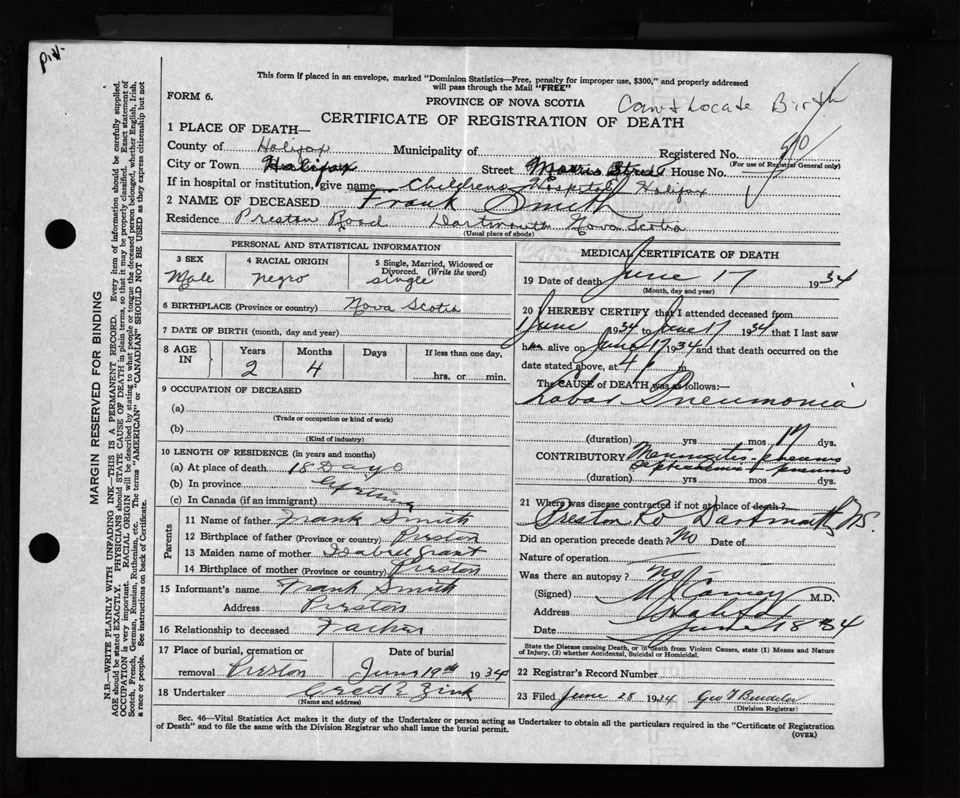 This form if placed in an envelope, marked "Dominion Statistics—Free, penalty for improper use, $300," and properly addressed
will pass through the Mail "FREE"
FORM 6.
PROVINCE OF NOVA SCOTIA
Can't Locate Birth
CERTIFICATE OF REGISTRATION OF DEATH
1 PLACE OF DEATH—
County of Halifax Municipality of Registered No.
(For use of Registrar General only)
City or Town Halifax Street Morris Street House No.
If in hospital or institution, give name Childrens Hospital Halifax
2 NAME OF DECEASED Frank Smith
Residence Preston Road Dartmouth Nova Scotia
(Usual place of abode)
PERSONAL AND STATISTICAL INFORMATION
3 SEX 4 RACIAL ORIGIN 5 Single, Married, Widowed or Divorced. (Write the word)
Male negro single
6 BIRTHPLACE (Province or country) Nova Scotia
7 DATE OF BIRTH (month, day and year)
8 AGE IN Years Months Days If less than one day,
2 4 hrs. or min.
9 OCCUPATION OF DECEASED
(a)
(Trade or occupation or kind of work)
(b)
(Kind of industry)
10 LENGTH OF RESIDENCE (in years and months)
(a) At place of death 18 Days
(b) In province Lifetime
(c) In Canada (if an immigrant)
Parents
11 Name of father Frank Smith
12 Birthplace of father (Province or country) Preston
13 Maiden name of mother Isabell Grant
14 Birthplace of mother (Province or country) Preston
15 Informant's name Frank Smith
Address Preston
16 Relationship to deceased Father
17 Place of burial, cremation or removal Date of burial
Preston June 19th 1934
18 Undertaker Zink
(Name and address)
MEDICAL CERTIFICATE OF DEATH
19 Date of death June 17 1934
(Month, day and year)
20 I HEREBY CERTIFY that I attended deceased from
1 June 1934 to June 17 1934 that I last saw
him alive on June 17 1934 and that death occurred on the
date stated above, at 4 m.
The CAUSE of DEATH was as follows:
Lobar Pneumonia
(duration) yrs mos 17 dys.
CONTRIBUTORY
(duration) yrs mos dys.
21 Where was disease contracted if not at place of death?
Preston Rd Dartmouth NS.
Did an operation precede death? No Date of
Nature of operation
Was there an autopsy? No
(Signed) M.D.
Address Halifax
Date June 18 34
State the Disease causing Death, or in death from Violent Causes, state (1) Means and Nature
of Injury, (2) whether Accidental, Suicidal or Homicidal.
22 Registrar's Record Number
23 Filed June 28 1934 Geo
(Division Registrar)
Sec. 46—Vital Statistics Act makes it the duty of the Undertaker or person acting as Undertaker to obtain all the particulars required in the "Certificate of Registration
of Death" and to file the same with the Division Registrar who shall issue the burial permit.
(OVER)
MARGIN RESERVED FOR BINDING
N.B.—WRITE PLAINLY WITH UNFADING INK—THIS IS A PERMANENT RECORD. Every item of information should be carefully supplied.
AGE should be stated EXACTLY. PHYSICIANS should STATE CAUSE OF DEATH in plain terms, so that it may be properly classified. Exact statement of
OCCUPATION is very important. RACIAL ORIGIN will be described by stating to what people or tongue the deceased person belonged, whether English, Irish,
Scotch, French, German, Russian, Ruthenian, etc. The terms "AMERICAN" or "CANADIAN" SHOULD NOT BE USED as they express citizenship but not
a race or people. See instructions on back of Certificate.